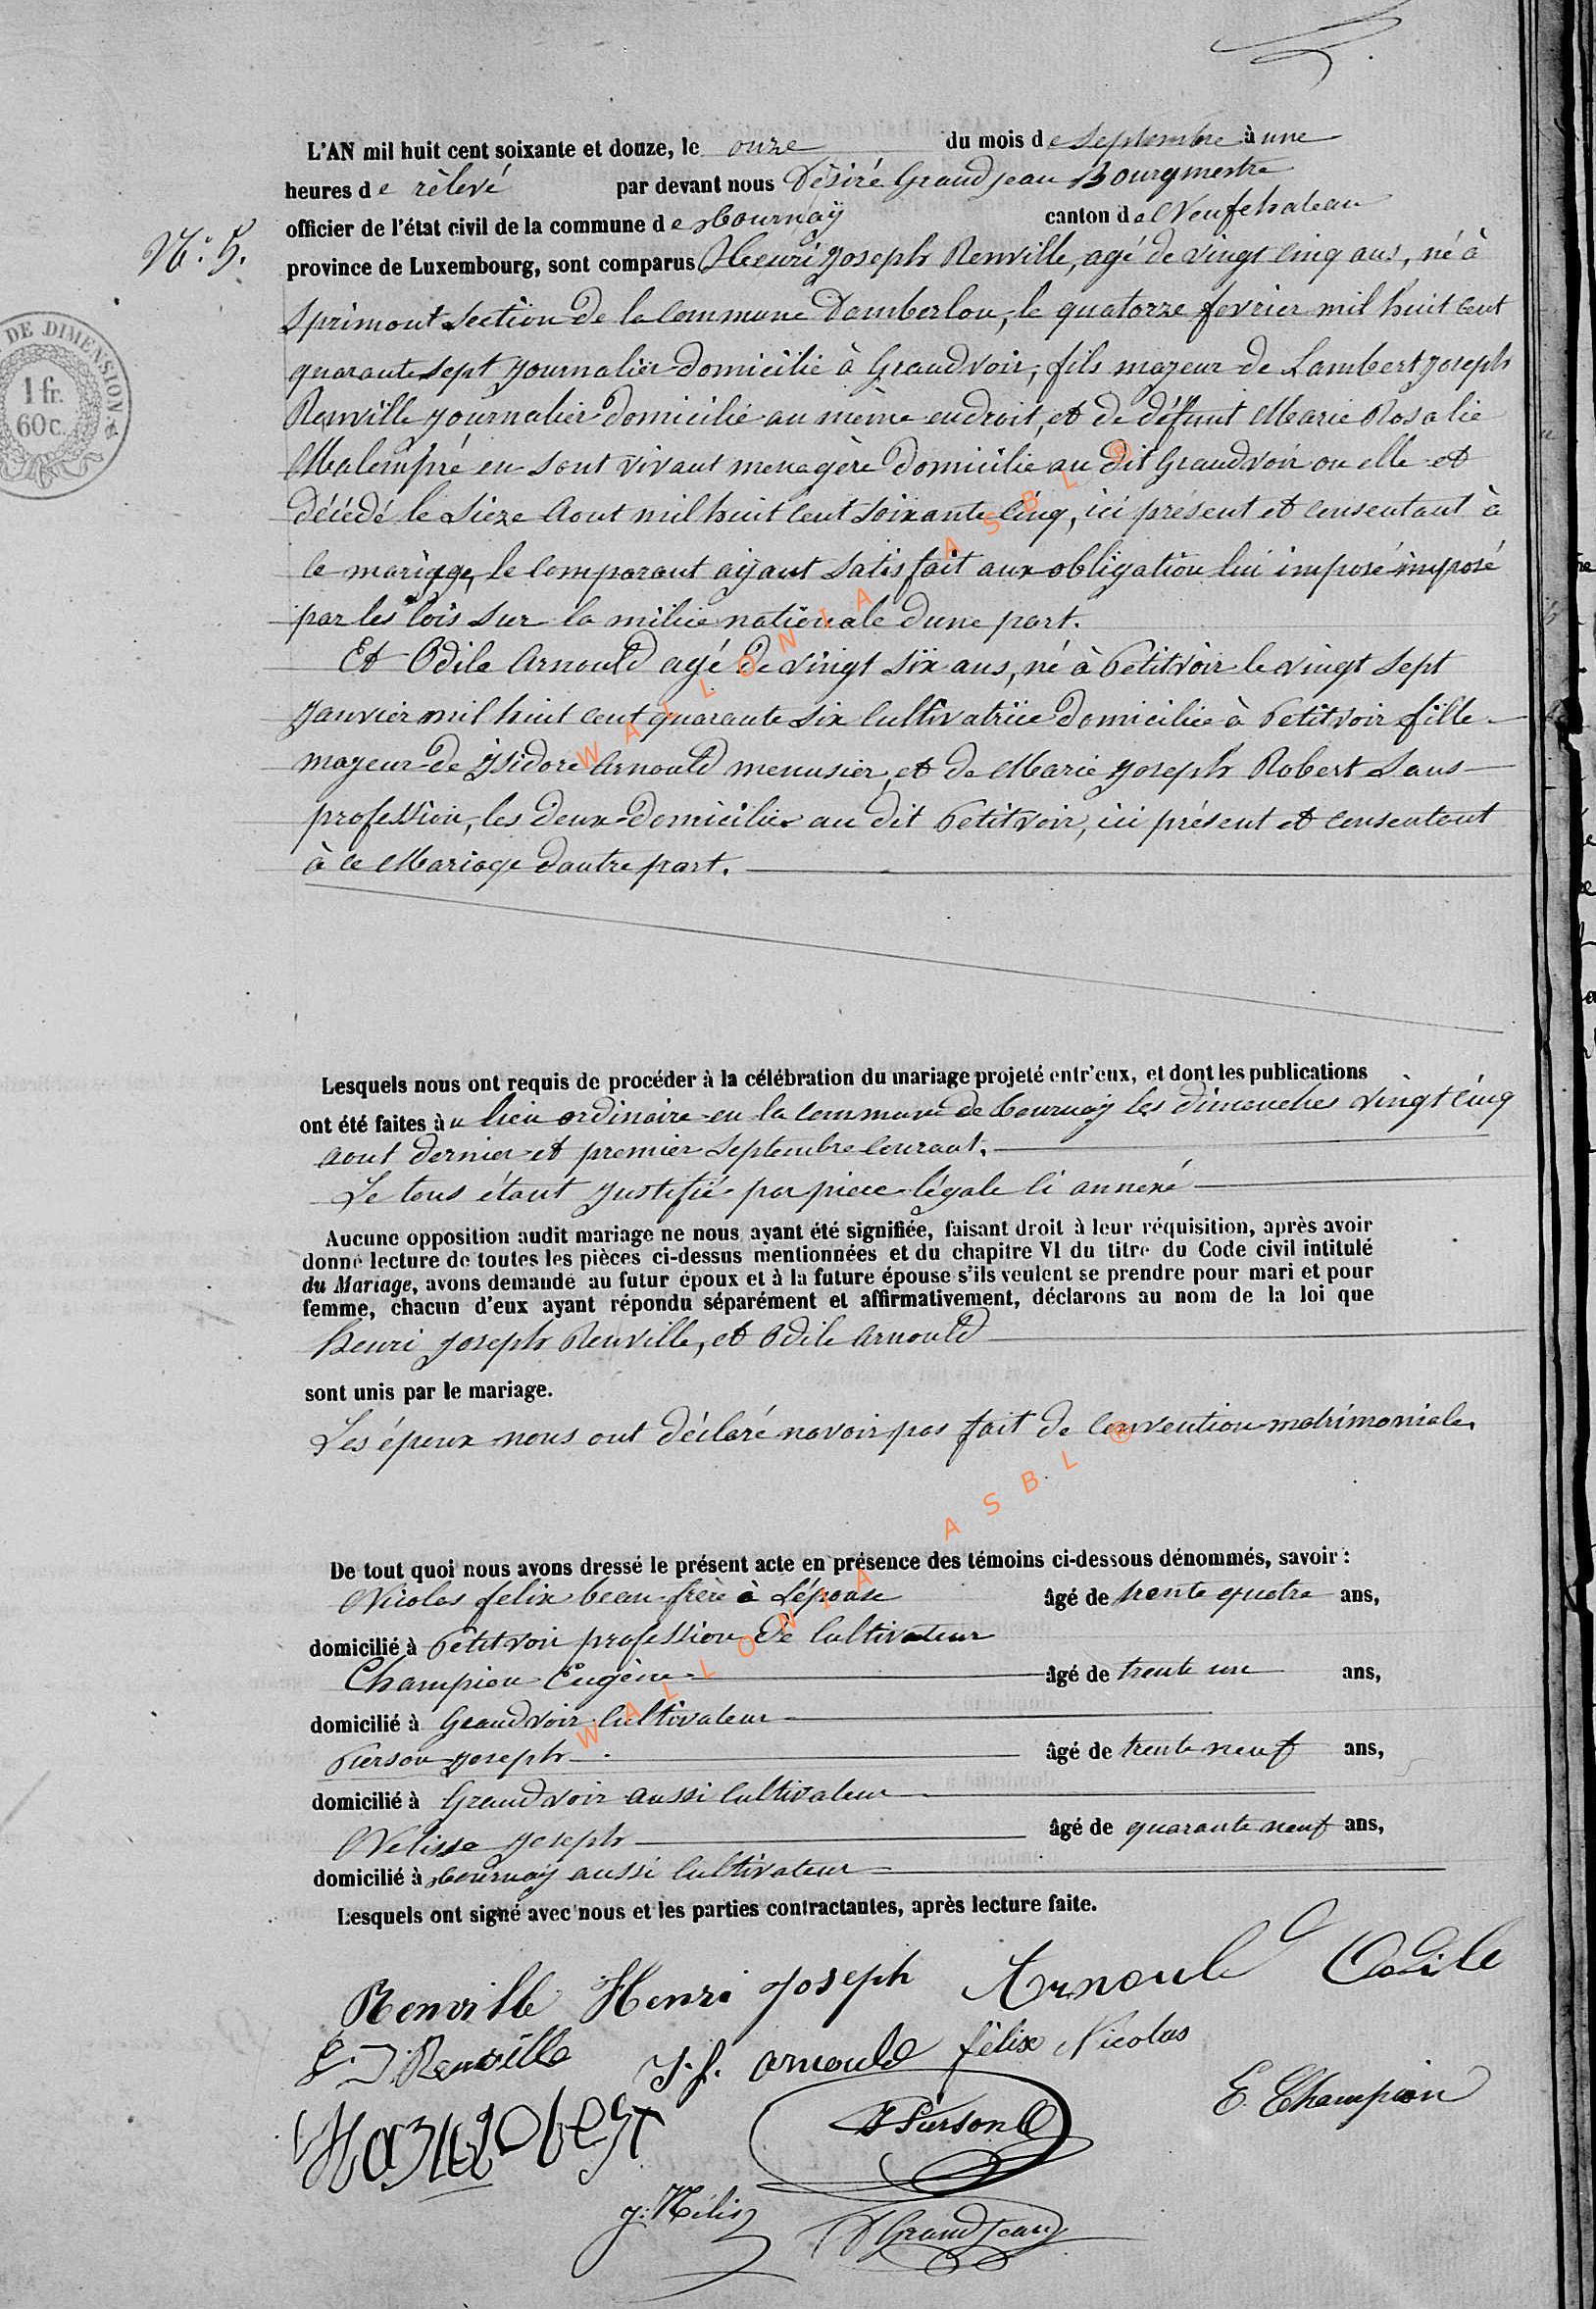 L'AN mil huit cent soixante et douze, le onze du mois de Septembre à une
heures de rèlevé par devant nous Dèsiré Grandjean Bourgmestre
officier de l'état civil de la commune de Tournaÿ canton de Neufchateau
N° 5.
province de Luxembourg, sont comparus Henri Joseph Renville, agé de vingt cinq ans, né à
DE DIMENSION.
1 fr.
60 c.
Sprimont Section de la Commune Damberlou, le quatorze fevrier mil huit cent
quarante sept Journalier domicilié à Grandvoir, fils mayeur de Lambert Joseph
Renville Journalier domicilié au mème endroit, et de défunt Marie Rosalie
Malempré en sont vivant menagère domicilié au dit Grandvoir ou elle et
décédé le sieze Aout mil huit cent soixante cinq, ici présent et consentant à
ce mariage, le comparant aÿant satisfait aux obligation lui imposé imposé
par les lois sur la milice nationale dune part.
Et Odile Arnould agé de vingt six ans, né à Petitvoir le vingt sept
Janvier mil huit cent quarante six cultivatrice domiciliée à Petitvoir fille
mayeur de Isidore Arnould menusier, et de Marie Joseph Robert Sans
profession, les deux domiciliés au dit Petitvoir, ici présent et consentent
à ce Mariage dautre part.
Lesquels nous ont requis de procéder à la célébration du mariage projeté entr'eux, et dont les publications
ont été faites au lieu ordinaire en la commune de Tournaÿ les dimanches vingt cinq
aout dernier et premier Septembre courant.
Le tous étant justifié par piece légale ci annexé
Aucune opposition audit mariage ne nous ayant été signifiée, faisant droit à leur réquisition, après avoir
donné lecture de toutes les pièces ci-dessus mentionnées et du chapitre VI du titre du Code civil intitulé
du Mariage, avons demandé au futur époux et à la future épouse s'ils veulent se prendre pour mari et pour
femme, chacun d'eux ayant répondu séparément et affirmativement, déclarons au nom de la loi que
henri Joseph Renville, et Odile Arnould
sont unis par le mariage.
Les époux nous ont déclaré navoir pas fait de convention matrimoniale.
De tout quoi nous avons dressé le présent acte en présence des témoins ci-dessous dénommés, savoir :
Nicolas felix beau-frère à Lépouse âgé de trente quatre ans,
domicilié à Petitvoir profession de Cultivateur
Champion Eugène âgé de trente un ans,
domicilié à Grandvoir Cultivateur
Pierson Joseph âgé de trente neuf ans,
domicilié à Grandvoir aussi Cultivateur
Nelisse Joseph âgé de quarante neuf ans,
domicilié à Tournaÿ aussi Cultivateur
Lesquels ont signé avec nous et les parties contractantes, après lecture faite.
Renville Henri Joseph Arnould Odile
L. J. Renville J. J. arnould félix Nicolas
E. Champion
J Pierson
J. Nélis
D Grandjean
WALLONIA ASBL ®
WALLONIA ASBL ®